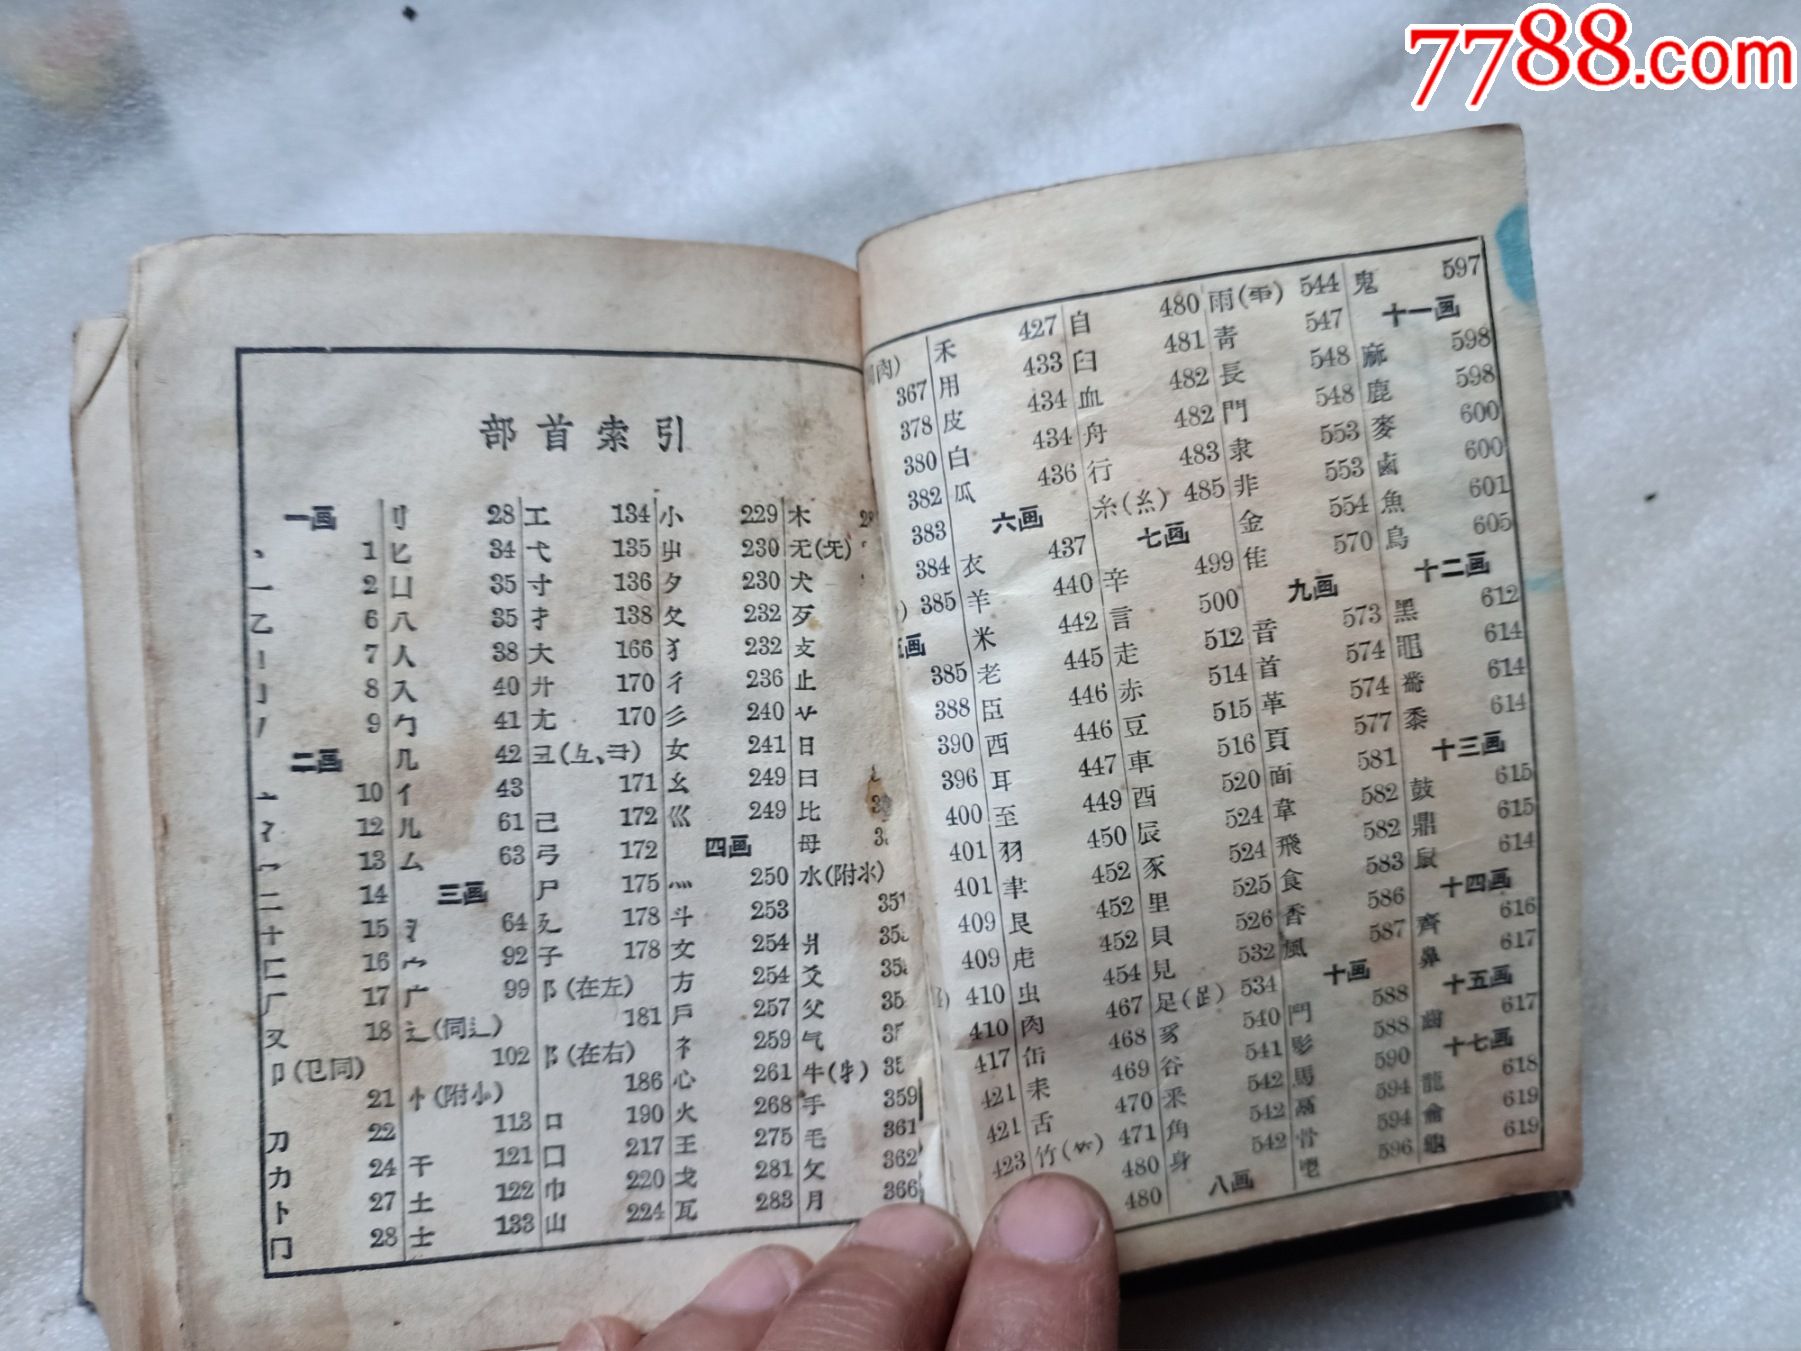 7788.com
部首索引
一画
丶 1
一 2
乙 6
丨 7
亅 8
丿 9
二画
亠 10
冫 12
冖 13
二 14
十 15
匚 16
厂 17
又 18
卩(㔾同)
21
刀 22
力 24
卜 27
冂 28
刂 28
匕 34
凵 35
八 35
人 38
入 40
勹 41
几 42
亻 43
儿 61
厶 63
三画
氵 64
宀 92
广 99
辶(同辶)
102
忄(附㣺)
113
干 121
土 122
士 133
工 134
弋 135
寸 136
扌 138
大 166
廾 170
尢 170
彐(彑、⺕)
171
己 172
弓 172
尸 175
廴 178
子 178
阝(在左)
181
阝(在右)
186
口 190
囗 217
巾 220
山 224
小 229
屮 230
夕 230
夂 232
犭 232
彳 236
彡 240
女 241
幺 249
巛 249
四画
灬 250
斗 253
文 254
方 254
戶 257
礻 259
心 261
火 268
王 275
戈 281
瓦 283
木
无(旡)
犬
歹
攴
止
爫
日
曰
比
毋
水(附氺)
351
爿
爻
父
气
牛(牜)
手 359
毛 361
攵 362
月 366
肉)
367
378
380
382
383
384
385
五画
385
388
390
396
400
401
401
409
409
410
410
417
421
421
423
禾 427
用 433
皮 434
白 434
瓜 436
六画
衣 437
羊 440
米 442
老 445
臣 446
西 446
耳 447
至 449
羽 450
聿 452
艮 452
虍 452
虫 454
肉 467
缶 468
耒 469
舌 470
竹(⺮) 471
480
480
自 480
臼 481
血 482
舟 482
行 483
糸(糹) 485
七画
辛 499
言 500
走 512
赤 514
豆 515
車 516
酉 520
辰 524
豕 524
里 525
貝 526
見 532
足(⻊) 534
豸 540
谷 541
釆 542
角 542
身 542
八画
雨(⻗) 544
青 547
長 548
門 548
隶 553
非 553
金 554
隹 570
九画
音 573
首 574
革 574
頁 577
面 581
韋 582
飛 582
食 583
香 586
風 587
十画
鬥 588
髟 588
馬 590
鬲 594
骨 594
鬯 596
鬼 597
十一画
麻 598
鹿 598
麥 600
鹵 600
魚 601
鳥 605
十二画
黑 612
黽 614
黹 614
黍 614
十三画
鼓 615
鼎 615
鼠 614
十四画
齊 616
鼻 617
十五画
齒 617
十七画
龍 618
龠 619
龜 619